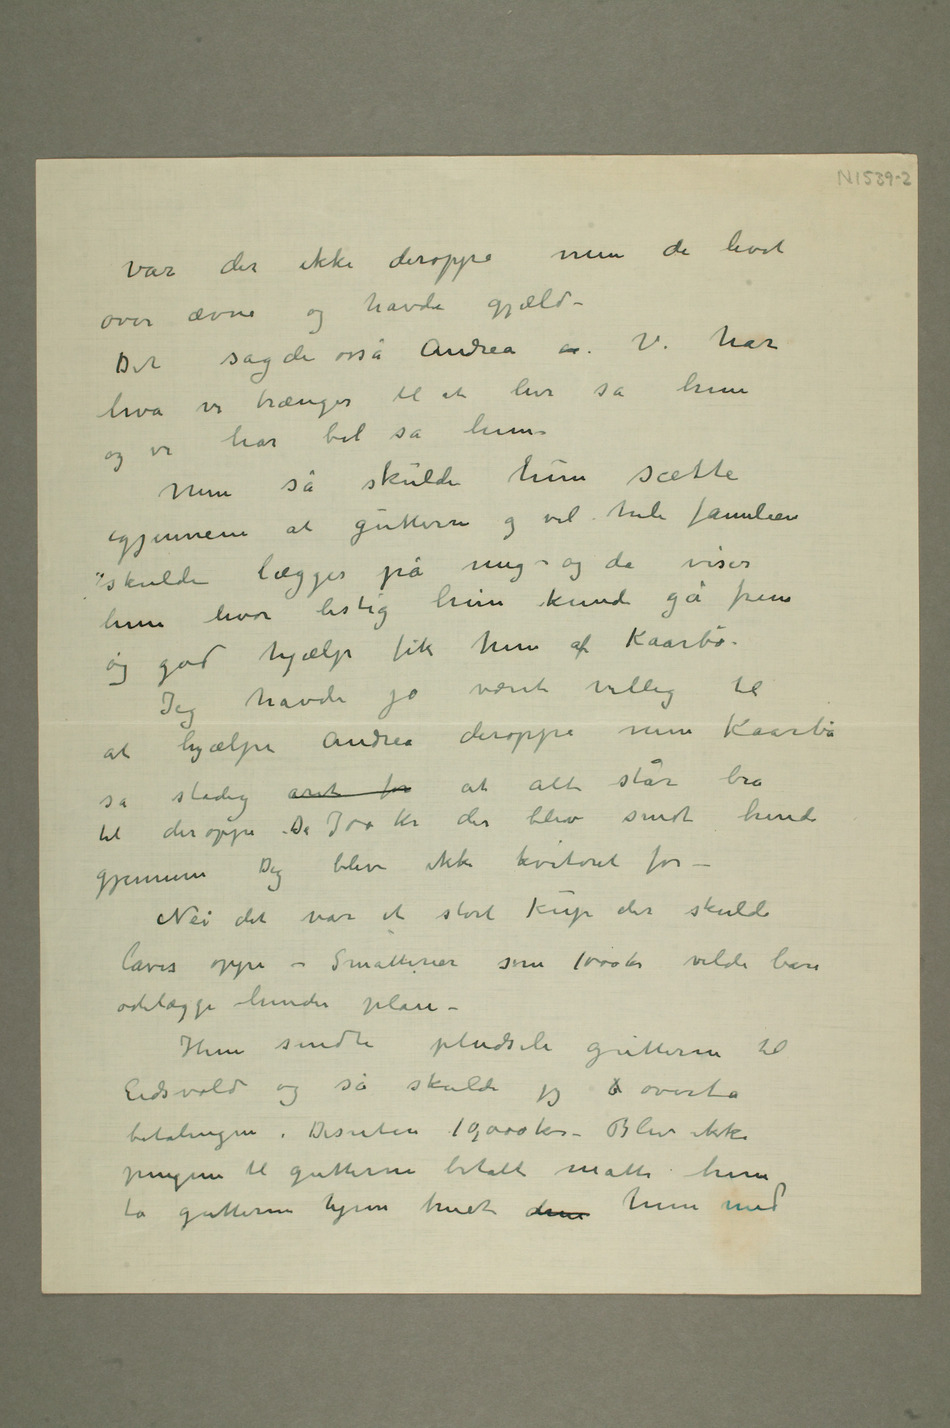 N1539-2
var der ikke deroppe men de levet
over ævne og havde gjæld –
Det sagde osså Andrea a. Vi har
hva vi trænger til at leve sa hun
og vi har bil sa hun –
Men så skulde hun sætte
igjennem at gutterne og vel hele familien
skulde lægges på mig – og da viser
hun hvor listig hun kunde gå frem
og god hjælp fik hun af Kaarbø –
Jeg havde jo været villig til
at hjælpe Andrea deroppe men Kaarbø
sa stadig at alt står bra
til deroppe – De 700 kr der blev sendt hende
gjennem Dig blev ikke kvitoret for –
Nei det var et stort Kup der skulde
laves oppe – Småtterier som 1000 kr vilde bare
odelægge hendes plan –
Hun sendte pludseli gutterne til
Eidsvold og så skulde jeg overta
betalingen. Desuten 19000 kr – Blev ikke
pengene til gutterne betalt måtte hun
ta gutterne hjem truet hun med